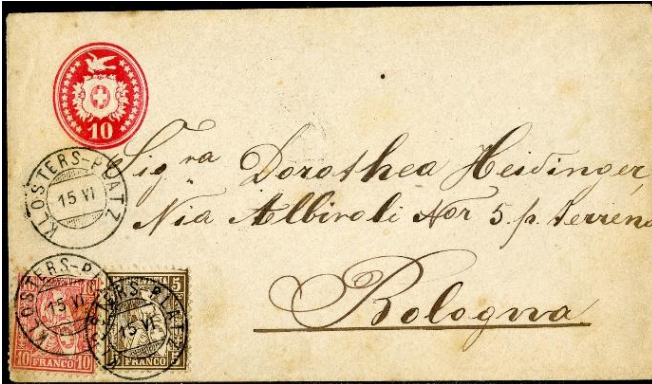 10
KLOSTERS-PLATZ
15 VI
Sig ra Dorothea Heidinger
Via Albiroli Nor 5. p. terreno
Bologna.
KLOSTERS-PLATZ
15 VI
10 FRANCO 10
KLOSTERS-PLATZ
15 VI
5 5
5 FRANCO 5